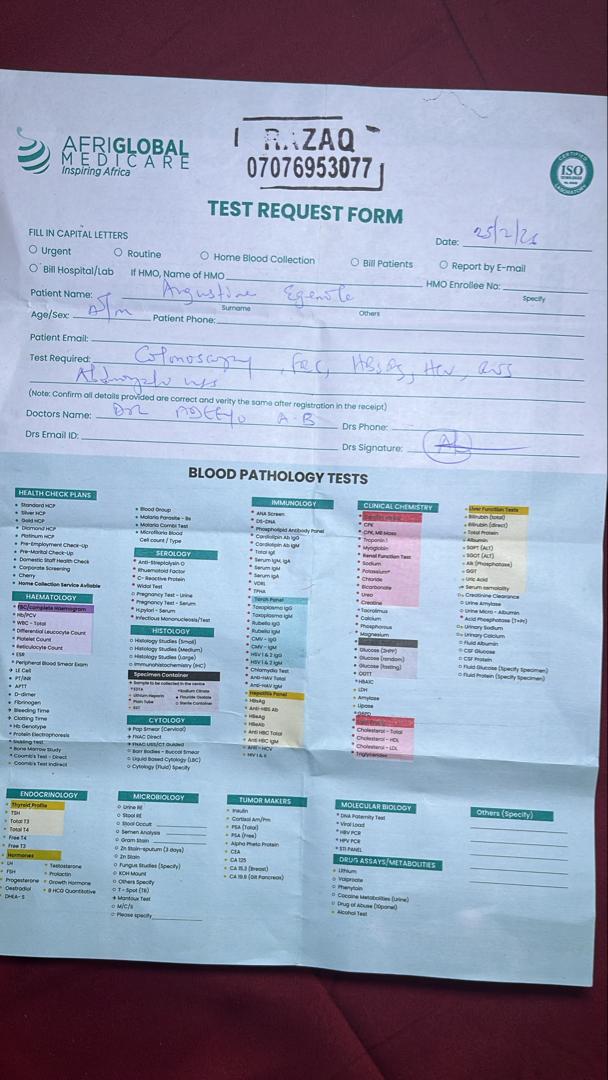 AFRIGLOBAL
MEDICARE
Inspiring Africa
RAZAQ
07076953077
CERTIFIED
ISO
LABORATORY
TEST REQUEST FORM
FILL IN CAPITAL LETTERS
Date: 25/2/26
Urgent Routine Home Blood Collection Bill Patients Report by E-mail
Bill Hospital/Lab If HMO, Name of HMO HMO Enrollee No:
Specify
Patient Name: Augustine
Surname Others
Age/Sex: Patient Phone:
Patient Email:
Test Required: Colonoscopy, HBsAg, HCV,
(Note: Confirm all details provided are correct and verify the same after registration in the receipt)
Doctors Name: DR A.B Drs Phone:
Drs Email ID: Drs Signature:
BLOOD PATHOLOGY TESTS
HEALTH CHECK PLANS
Standard HCP
Silver HCP
Gold HCP
Diamond HCP
Platinum HCP
Pre-Employment Check-Up
Pre-Marital Check-Up
Domestic Staff Health Check
Corporate Screening
Cherry
Home Collection Service Avilable
HAEMATOLOGY
FBC/complete Haemogram
Hb/PCV
WBC - Total
Differential Leucocyte Count
Platelet Count
Reticulocyte Count
ESR
Peripheral Blood Smear Exam
LE Cell
PT/INR
APTT
D-dimer
Fibrinogen
Bleeding Time
Clotting Time
Hb Genotype
Protein Electrophoresis
Bone Marrow Study
Coomb's Test - Direct
Coomb's Test Indirect
Blood Group
Malaria Parasite - Bs
Malaria Combi Test
Microfilaria Blood
Cell count / Type
SEROLOGY
Anti-Streptolysin O
Rheumatoid Factor
C- Reactive Protein
Widal Test
Pregnancy Test - Urine
Pregnancy Test - Serum
H.pylori - Serum
Infectious Mononucleosis/Test
HISTOLOGY
Histology Studies (Small)
Histology Studies (Medium)
Histology Studies (Large)
Immunohistochemistry (IHC)
Specimen Container
Sample to be collected in the centre
EDTA Sodium Citrate
Lithium Heparin Flouride Oxalate
Plain Tube Sterile Container
SST
CYTOLOGY
Pap Smear (Cervical)
FNAC Direct
FNAC USS/CT Guided
Barr Bodies - Buccal Smear
Liquid Based Cytology (LBC)
Cytology (Fluid) Specify
IMMUNOLOGY
ANA Screen
DS-DNA
Phospholipid Antibody Panel
Cardiolipin Ab IgG
Cardiolipin Ab IgM
Total IgE
Serum IgM, IgA
Serum IgM
Serum IgA
VDRL
TPHA
Torch Panel
Toxoplasma IgG
Toxoplasma IgM
Rubella IgG
Rubella IgM
CMV - IgG
CMV - IgM
HSV 1 & 2 IgG
HSV 1 & 2 IgM
Chlamydia Test
Anti-HAV Total
Anti-HAV IgM
Hepatitis Panel
HBsAg
Anti-HBS Ab
HBeAg
HBeAb
Anti HBC Total
Anti HBC IgM
Anti - HCV
HIV 1 & II
CLINICAL CHEMISTRY
CPK
CPK, MB Mass
Troponin I
Myoglobin
Renal Function Test
Sodium
Potassium
Chloride
Bicarbonate
Urea
Creatine
Tacrolimus
Calcium
Phosphorous
Magnesium
Glucose (2HPP)
Glucose (random)
Glucose (fasting)
OGTT
HBAIC
LDH
Amylase
Lipase
G6PD
Cholesterol - Total
Cholesterol - HDL
Cholesterol - LDL
Triglycerides
Liver Function Tests
Bilirubin (total)
Bilirubin (direct)
Total Protein
Albumin
SGPT (ALT)
SGOT (ALT)
Alk (Phosphatase)
GGT
Uric Acid
Serum osmolality
Creatinine Clearance
Urine Amylase
Urine Micro - Albumin
Acid Phosphatase (T+Pr)
Urinary Sodium
Urinary Calcium
Fluid Albumin
CSF Glucose
CSF Protein
Fluid Glucose (Specify Specimen)
Fluid Protein (Specify Specimen)
ENDOCRINOLOGY
Thyroid Profile
TSH
Total T3
Total T4
Free T4
Free T3
Hormones
LH Testosterone
FSH Prolactin
Progesterone Growth Hormone
Oestradiol B HCG Quantitative
DHEA- S
MICROBIOLOGY
Urine RE
Stool RE
Stool Occult
Semen Analysis
Gram Stain
Zn Stain-sputum (3 days)
Zn Stain
Fungus Studies (Specify)
KOH Mount
Others Specify
T - Spot (TB)
Mantoux Test
M/C/S
Please specify
TUMOR MAKERS
Insulin
Cortisol Am/Pm
PSA (Total)
PSA (Free)
Alpha Pheto Protein
CEA
CA 125
CA 15.3 (Breast)
CA 19.9 (GIt Pancreas)
MOLECULAR BIOLOGY
DNA Paternity Test
Viral Load
HBV PCR
HPV PCR
STI PANEL
DRUG ASSAYS/METABOLITIES
Lithium
Valproate
Phenytoin
Cocaine Metabolities (Urine)
Drug of Abuse (10panel)
Alcohol Test
Others (Specify)